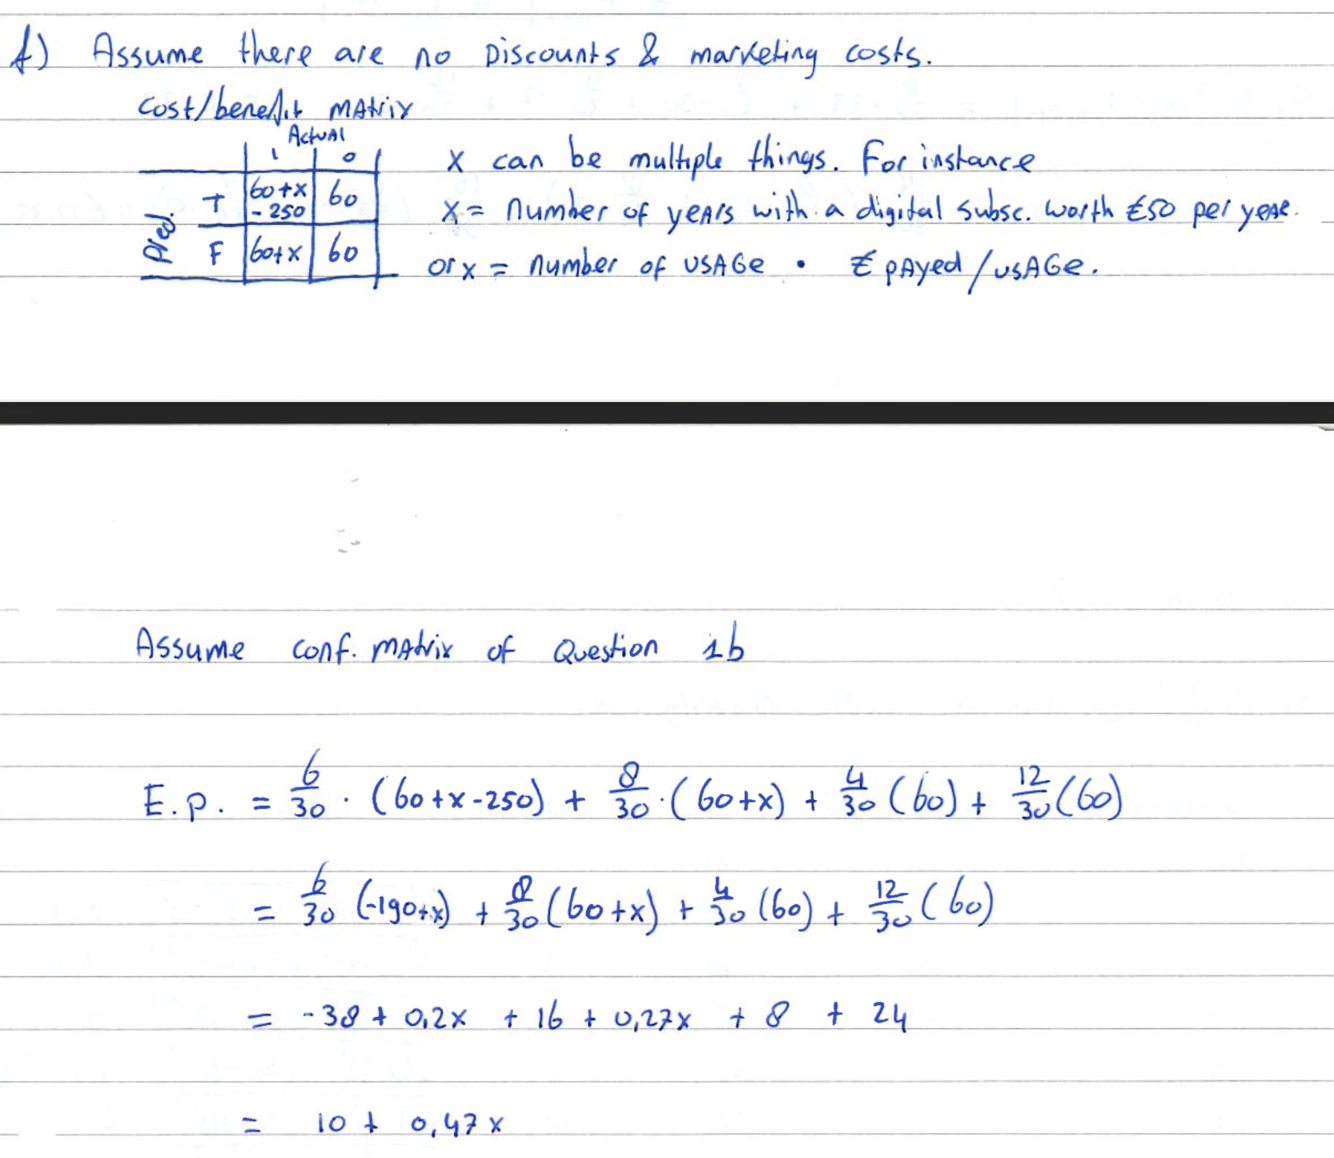 f) Assume there are no Discounts & marketing costs.
cost/benefit matrix
Actual
1 0
T 60+x -250 60
Pred.
F 60+x 60
x can be multiple things. For instance
x = number of years with a digital subsc. worth €50 per year.
or x = number of usage • € payed/usage.
Assume conf. matrix of Question 1b
E.p. = 6/30 · (60+x-250) + 8/30 · (60+x) + 4/30 (60) + 12/30 (60)
= 6/30 (-190+x) + 8/30 (60+x) + 4/30 (60) + 12/30 (60)
= -38 + 0,2x + 16 + 0,27x + 8 + 24
= 10 + 0,47x